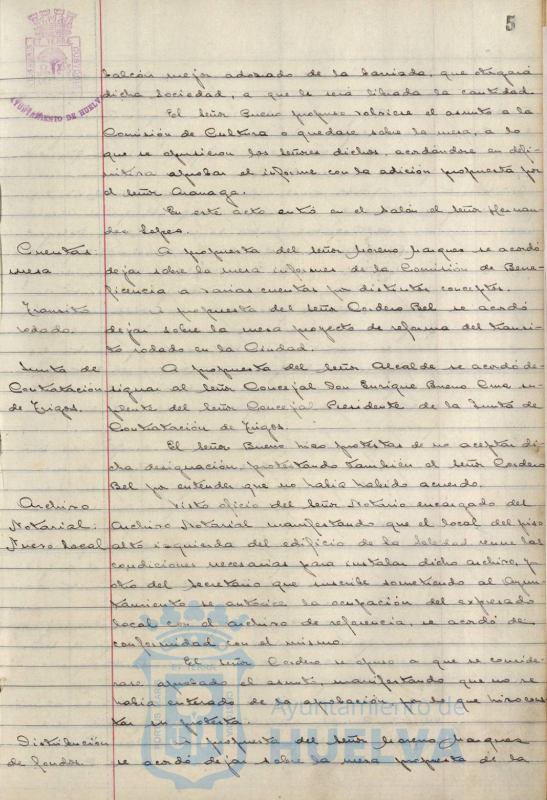 5
AYUNTAMIENTO DE HUELVA
balcón mejor adornado de la barriada, que otorgará
dicha Sociedad, a que le será librada la cantidad.
El Señor Bueno propuso volviese el asunto a la
Comisión de Cultura o quedase sobre la mesa, a lo
que se opusieron los señores dichos, acordándose en defi-
nitiva aprobar el informe con la adición propuesta por
el Señor
En este acto entró en el salón el Señor Hernan-
dez Lopez.
Cuentas
mesa
A propuesta del Señor Moreno Marquez se acordó
dejar sobre la mesa informes de la Comisión de Bene-
ficencia a varias cuentas por distintos conceptos.
Transito
rodado.
A propuesta del Señor Cordero Bel se acordó
dejar sobre la mesa proyecto de reforma del transi-
to rodado en la Ciudad.
Junta de
Contratación
de Trigos.
A propuesta del Señor Alcalde se acordó de-
signar al Señor Concejal Don Enrique Bueno Cruz su-
plente del Señor Concejal Presidente de la Junta de
Contratación de Trigos.
El Señor Bueno hizo protestas de no aceptar di-
cha designación, protestando también el Señor Cordero
Bel por entender que no había habido acuerdo.
Archivo
Notarial.
Nuevo local
Visto oficio del Señor Notario encargado del
Archivo Notarial manifestando que el local del piso
alto izquierda del edificio de la Soledad reune las
condiciones necesarias para instalar dicho archivo, y
otro del Secretario que suscribe sometiendo al Ayun-
tamiento se autorice la ocupación del expresado
local con el archivo de referencia, se acordó de
conformidad con el mismo.
El Señor Cordero se opuso a que se conside-
rase aprobado el asunto, manifestando que no se
había enterado de la aprobación por lo que hizo cons-
tar su protesta.
Distribución
de fondos.
A propuesta del Señor Moreno Marquez
se acordó dejar sobre la mesa propuesta de la
Ayuntamiento de
HUELVA